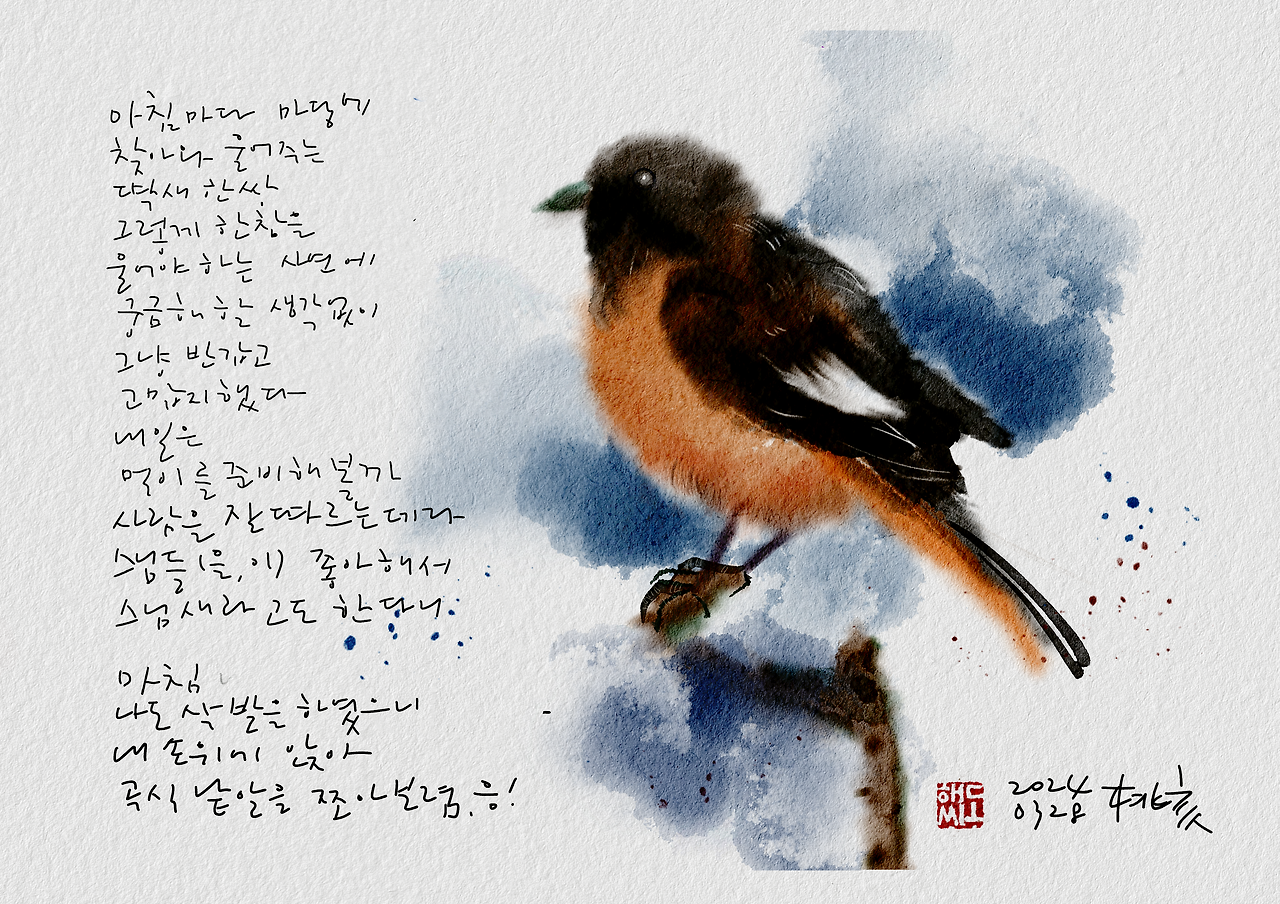 아침마다 마당에
찾아와 울어주는
딱새 한쌍
그렇게 한참을
울어야 하는 사연에
궁금해 할 생각없이
그냥 반갑고
고맙긔했다
내일은
먹이를 준비해 볼까
사람을 잘 따르는데다
스님들(을,이) 좋아해서
스님새라고도 한다니
마침
나도 삭발을 하였으니
내 손위에 앉아
곡식 낱알을 쪼아보렴, 응!
2024
03 28